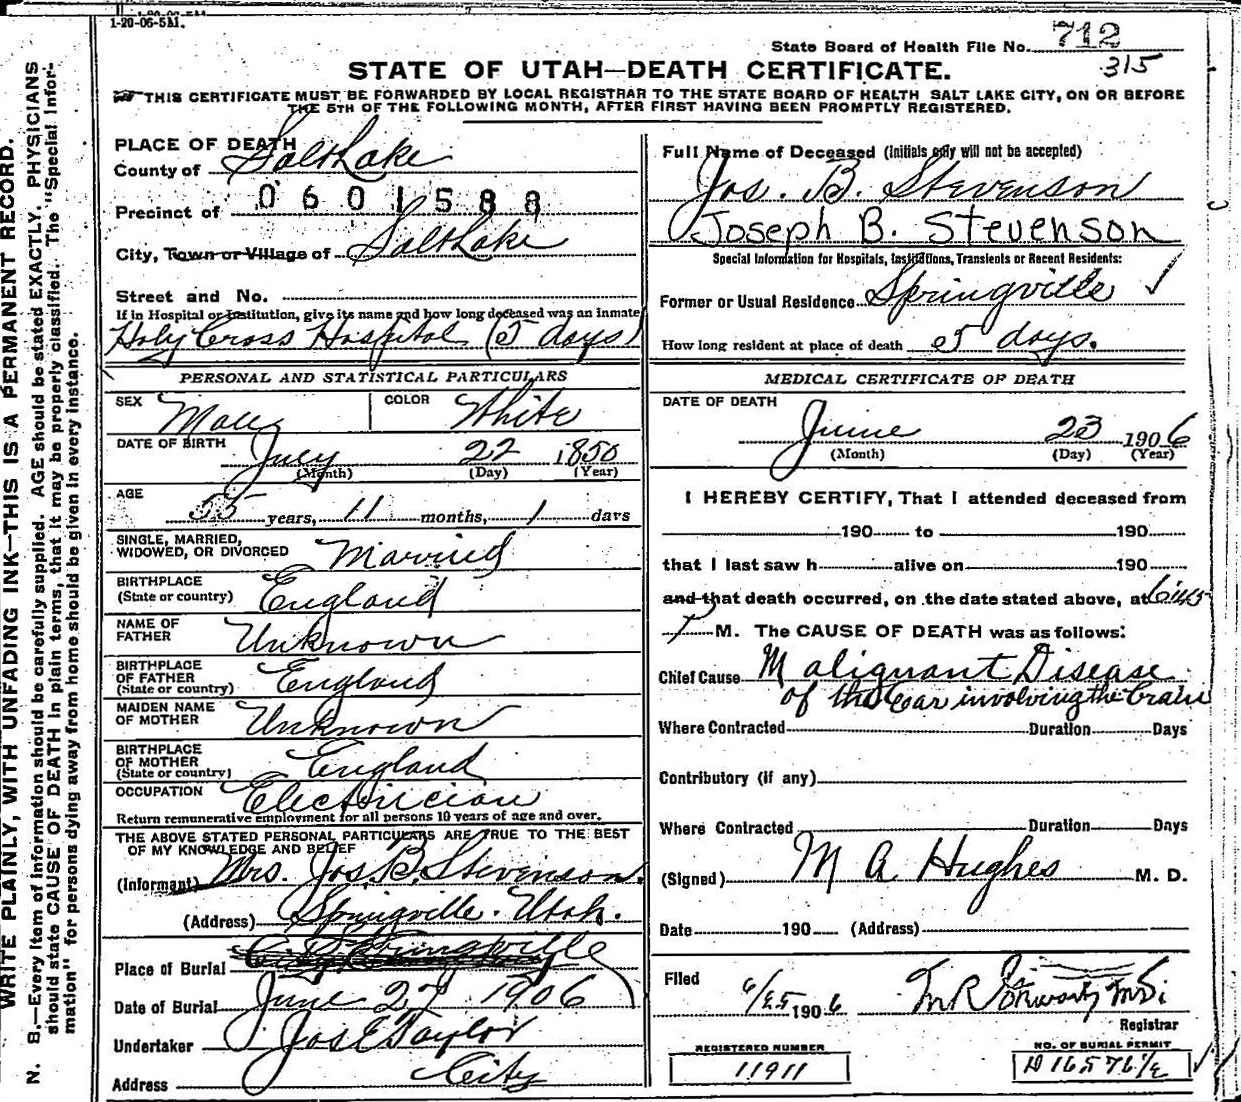 1-20-06-5M.
State Board of Health File No. 712
315
STATE OF UTAH—DEATH CERTIFICATE.
THIS CERTIFICATE MUST BE FORWARDED BY LOCAL REGISTRAR TO THE STATE BOARD OF HEALTH SALT LAKE CITY, ON OR BEFORE
THE 5TH OF THE FOLLOWING MONTH, AFTER FIRST HAVING BEEN PROMPTLY REGISTERED.
WRITE PLAINLY, WITH UNFADING INK—THIS IS A PERMANENT RECORD.
N. B.—Every item of information should be carefully supplied. AGE should be stated EXACTLY. PHYSICIANS
should state CAUSE OF DEATH in plain terms, that it may be properly classified. The "Special Infor-
mation" for persons dying away from home should be given in every instance.
PLACE OF DEATH
County of Salt Lake
0601588
Precinct of
City, Town or Village of Salt Lake
Street and No.
If in Hospital or Institution, give its name and how long deceased was an inmate
Holy Cross Hospital (5 days)
PERSONAL AND STATISTICAL PARTICULARS
SEX Male COLOR White
DATE OF BIRTH July 22 1850
(Month) (Day) (Year)
AGE
55 years, 11 months, 1 days
SINGLE, MARRIED,
WIDOWED, OR DIVORCED Married
BIRTHPLACE
(State or country) England
NAME OF
FATHER Unknown
BIRTHPLACE
OF FATHER
(State or country) England
MAIDEN NAME
OF MOTHER Unknown
BIRTHPLACE
OF MOTHER
(State or country) England
OCCUPATION Electrician
Return remunerative employment for all persons 10 years of age and over.
THE ABOVE STATED PERSONAL PARTICULARS ARE TRUE TO THE BEST
OF MY KNOWLEDGE AND BELIEF
(Informant) Mrs. Jos. B. Stevenson.
(Address) Springville. Utah.
Place of Burial Springville
Date of Burial June 27 1906
Undertaker Jos E Taylor
Address City
Full Name of Deceased (Initials only will not be accepted)
Jos. B. Stevenson
Joseph B. Stevenson
Special Information for Hospitals, Institutions, Transients or Recent Residents:
Former or Usual Residence Springville
How long resident at place of death 5 days.
MEDICAL CERTIFICATE OF DEATH
DATE OF DEATH
June 23 1906
(Month) (Day) (Year)
I HEREBY CERTIFY, That I attended deceased from
190 to 190
that I last saw h alive on 190
and that death occurred, on the date stated above, at 6:45
P M. The CAUSE OF DEATH was as follows:
Chief Cause Malignant Disease
of the Ear involving the brain
Where Contracted Duration Days
Contributory (if any)
Where Contracted Duration Days
(Signed) M A Hughes M. D.
Date 190 (Address)
Filed 6/25 1906
Registrar
REGISTERED NUMBER
11911
NO. OF BURIAL PERMIT